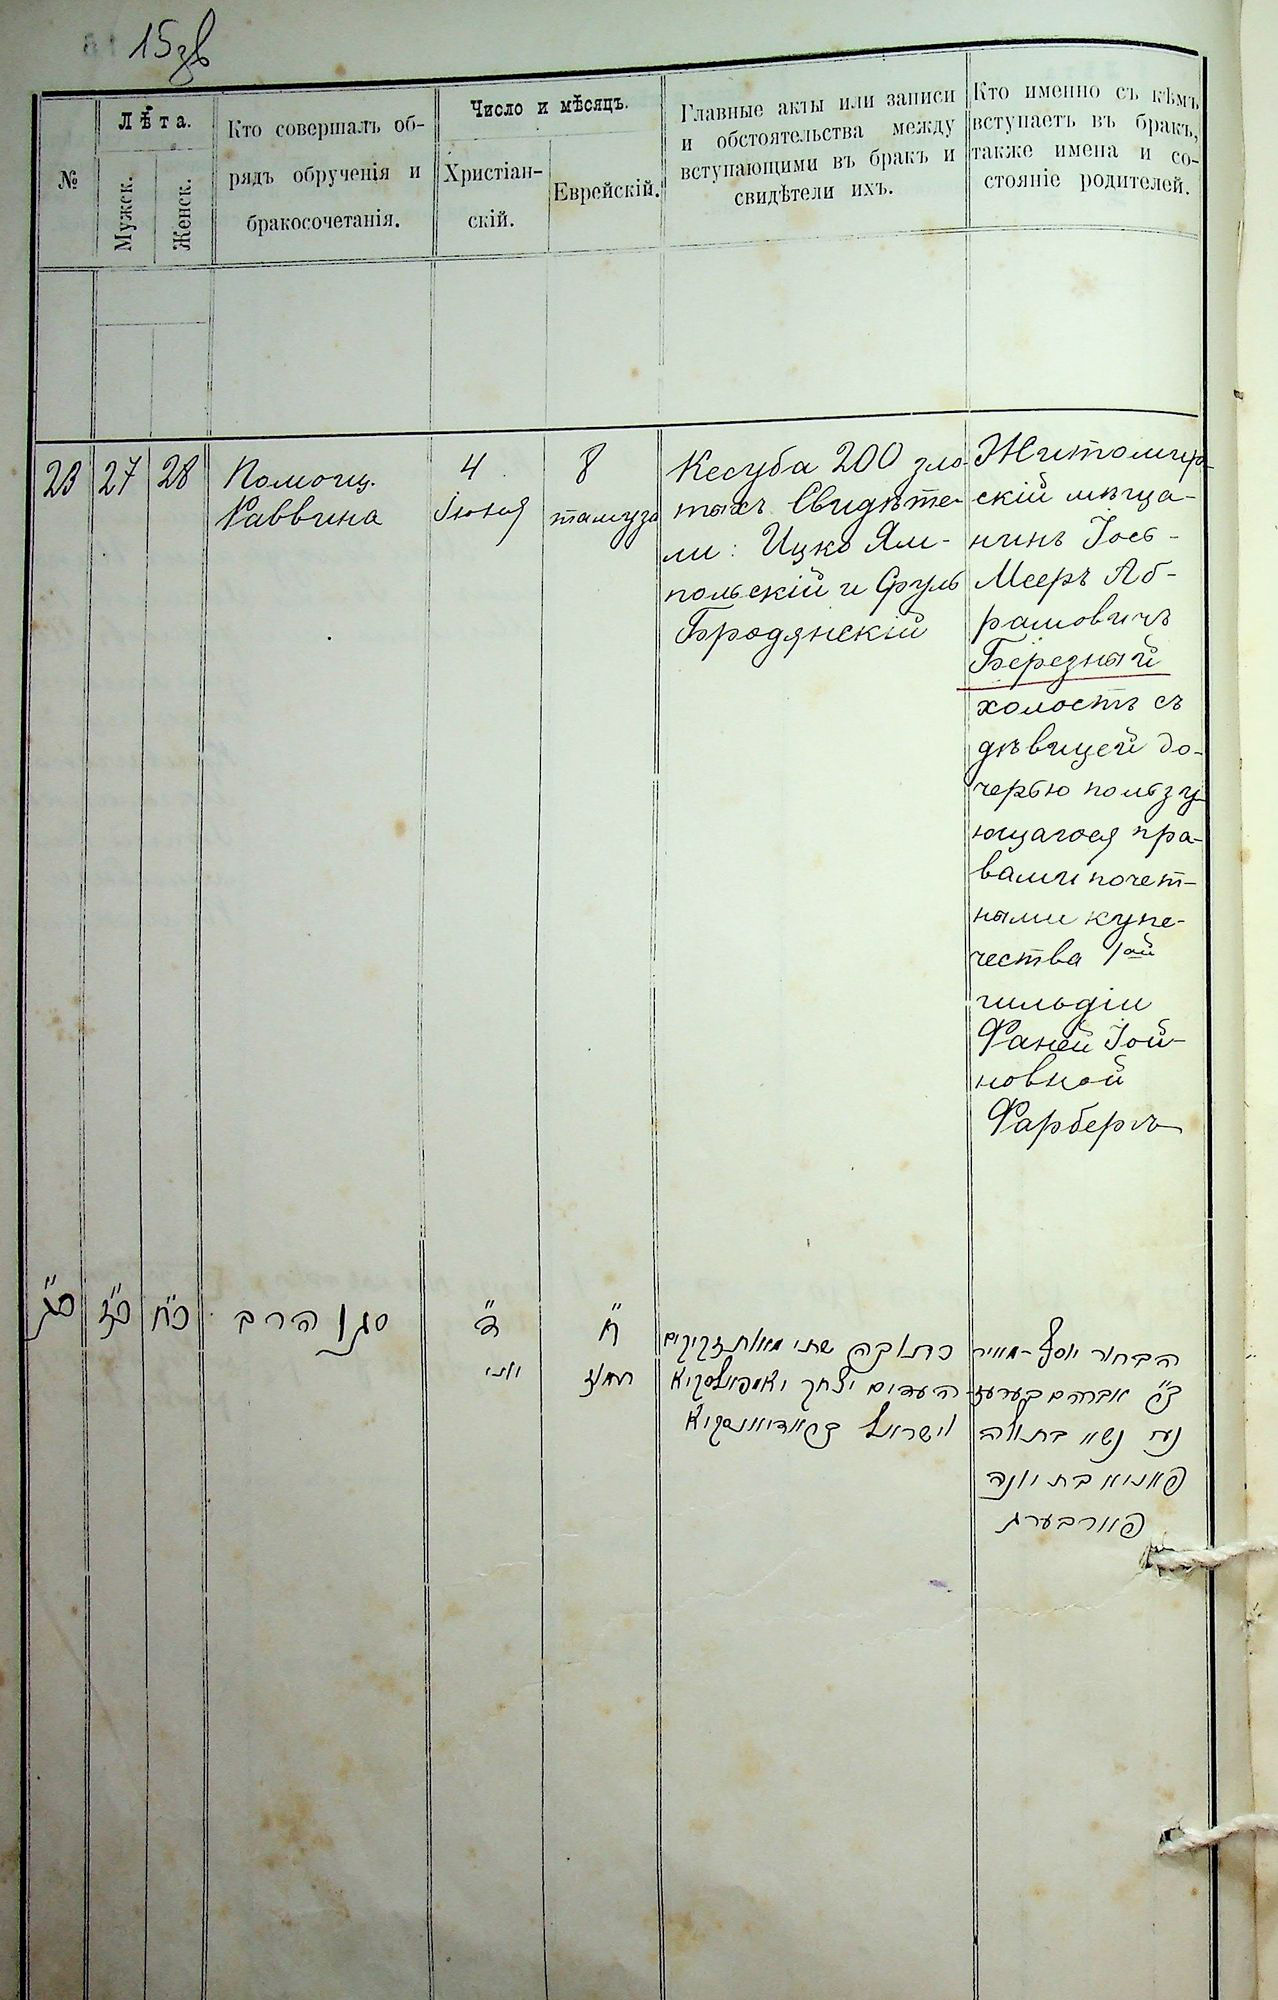 15 зв
№
Лѣта.
Мужск.
Женск.
Кто совершалъ об-
рядъ обрученія и
бракосочетанія.
Число и мѣсяцъ.
Христіан-
скій.
Еврейскій.
Главные акты или записи
и обстоятельства между
вступающими въ бракъ и
свидѣтели ихъ.
Кто именно съ кѣмъ
вступаетъ въ бракъ,
также имена и со-
стояніе родителей.
23
27
28
Помощ.
Раввина
4
Іюня
8
тамуза
Кесуба 200 зло-
тыхъ Свидѣте-
ли: Ицко Ям-
польскій и Сруль
Бродянскій
Житомир-
скій мѣща-
нинъ Іось-
Мееръ Аб-
рамовичъ
Березный
холостъ съ
дѣвицей до-
черью пользу
ющагося пра-
вами почет-
ными купе-
чества 1ой
гильдіи
Фаней Іой-
новной
Фарберъ
כ"ג
כ"ז
כ"ח
סגן הרב
ד"
יוני
ח"
תמוז
כתובה שתי מאות זקוקים
העדים יצחק יאמפאלסקיא
וישראל בראדיאנסקיא
הבחור יוסף-מאיר
ב"ר אברהם בערעז
נעי נשא בתולה
פאניא בת יונה
פארבער